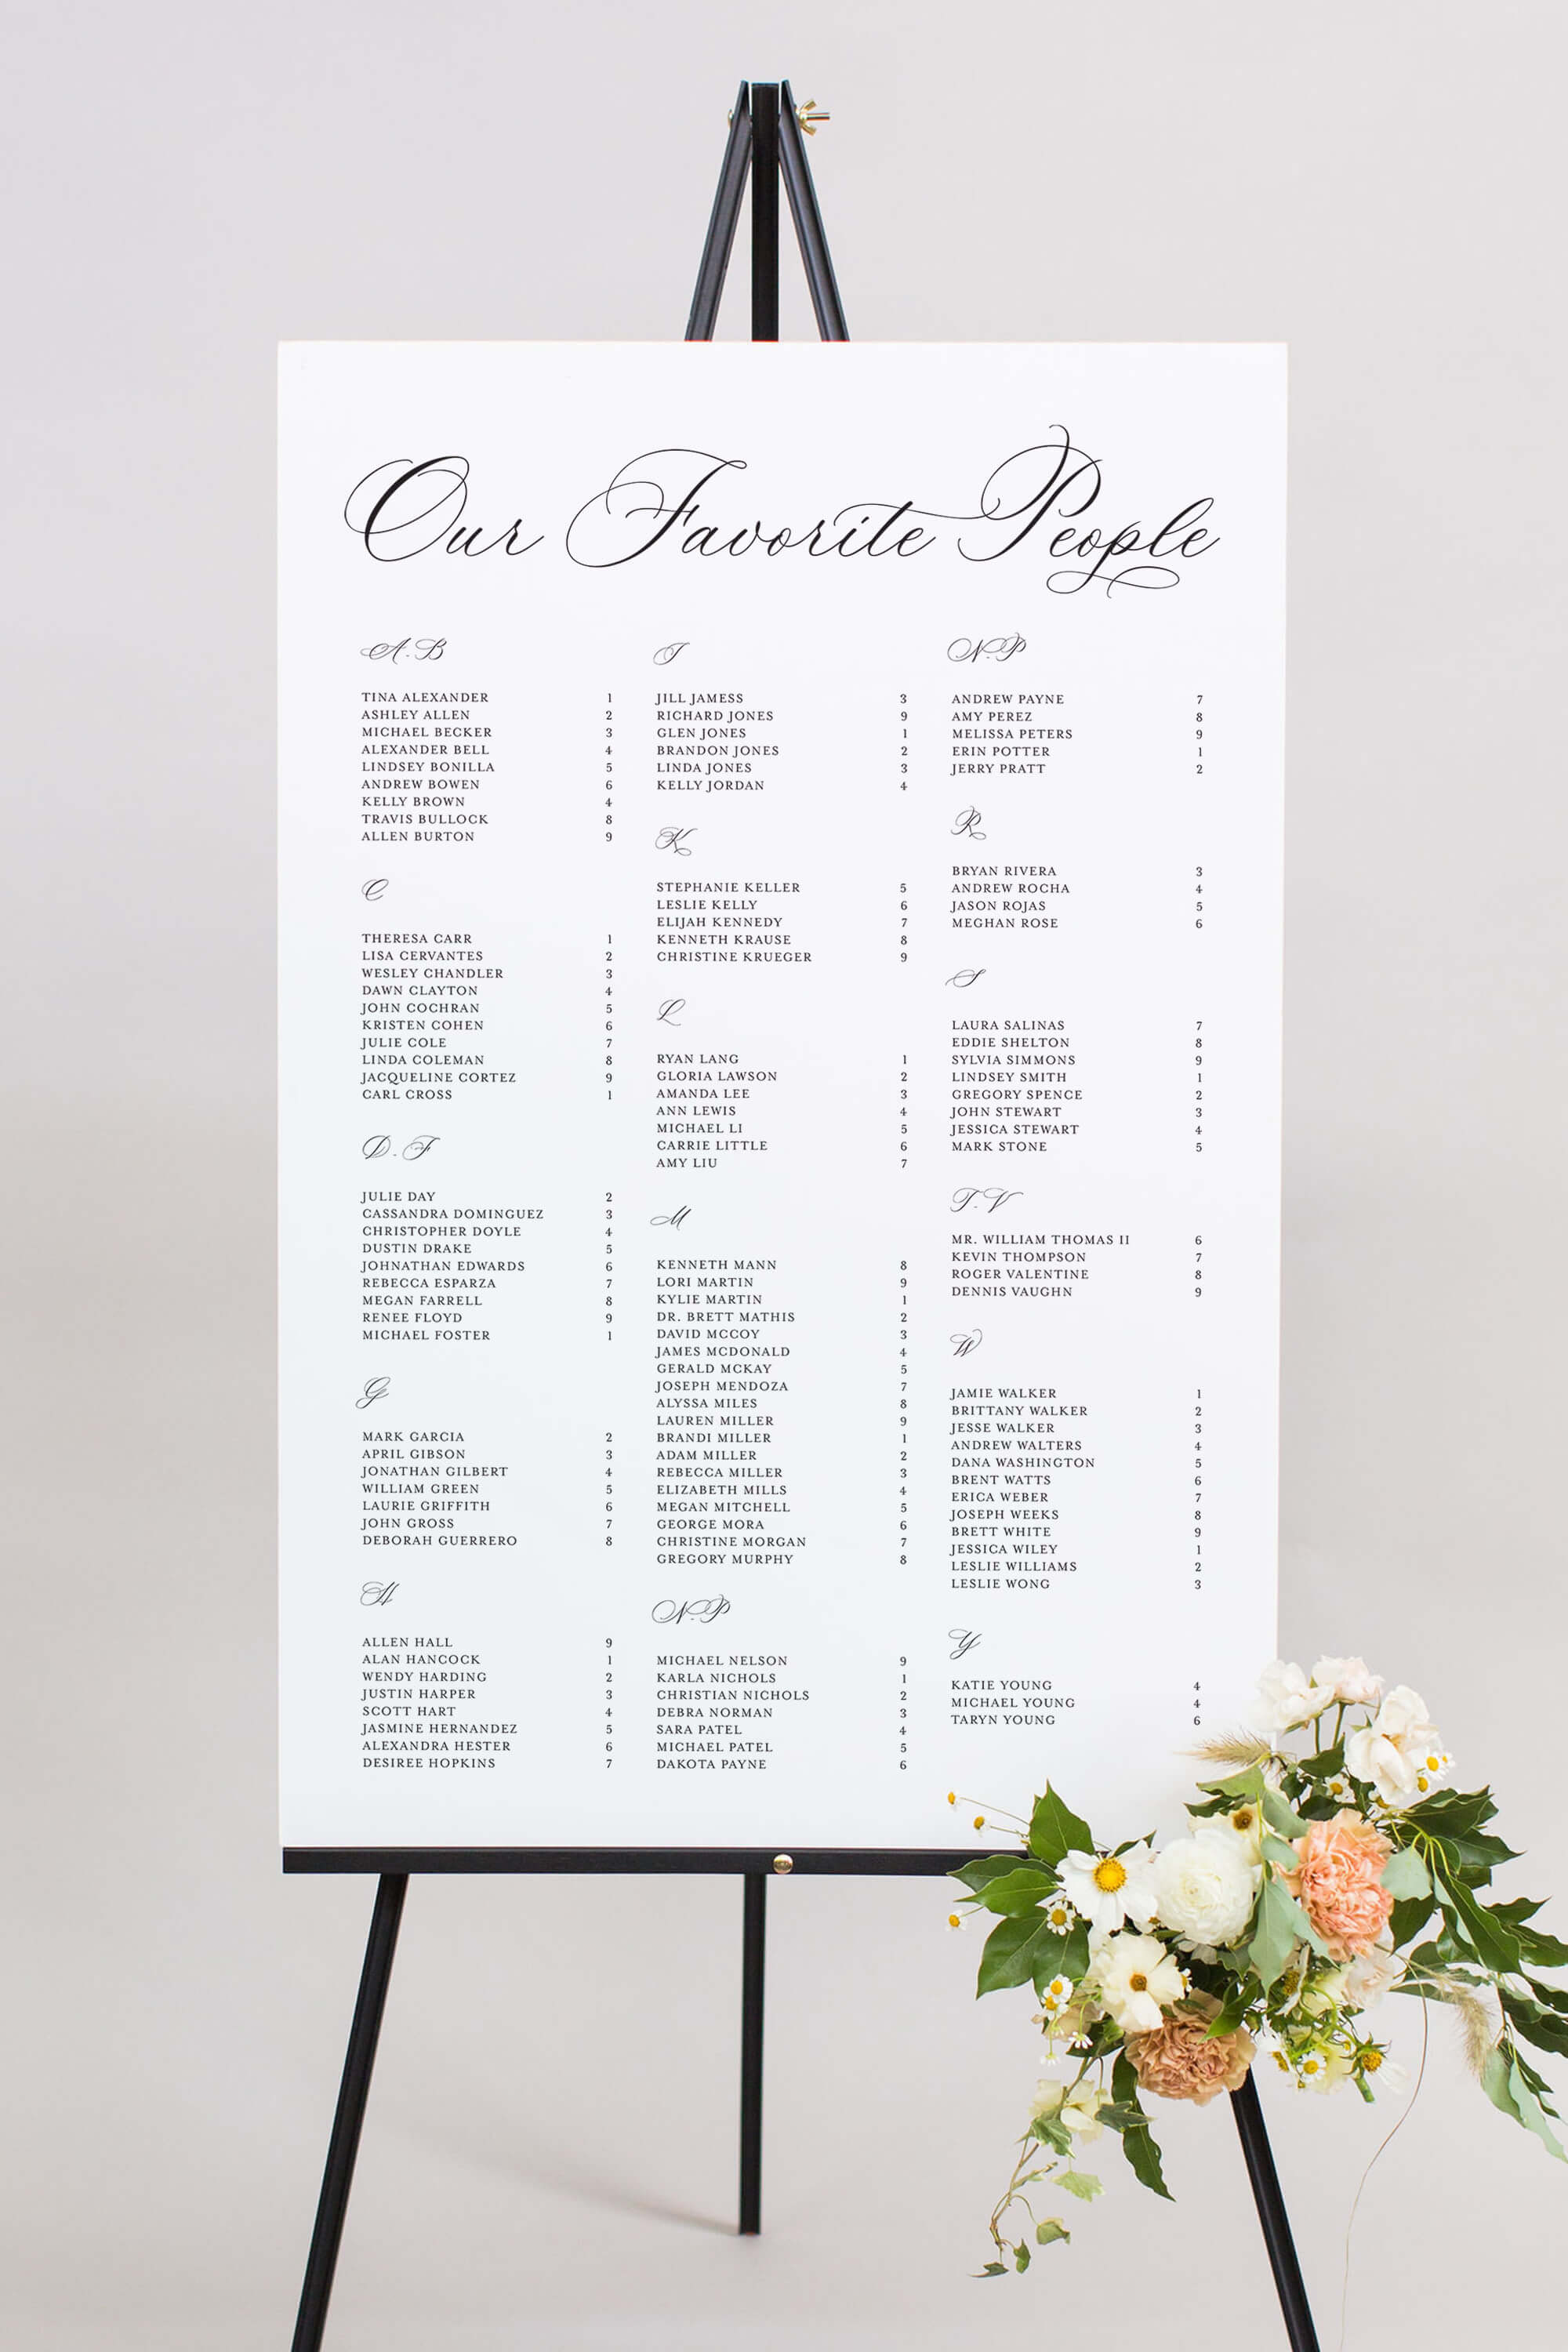 Our Favorite People
A-B
TINA ALEXANDER 1
ASHLEY ALLEN 2
MICHAEL BECKER 3
ALEXANDER BELL 4
LINDSEY BONILLA 5
ANDREW BOWEN 6
KELLY BROWN 4
TRAVIS BULLOCK 8
ALLEN BURTON 9
C
THERESA CARR 1
LISA CERVANTES 2
WESLEY CHANDLER 3
DAWN CLAYTON 4
JOHN COCHRAN 5
KRISTEN COHEN 6
JULIE COLE 7
LINDA COLEMAN 8
JACQUELINE CORTEZ 9
CARL CROSS 1
D-F
JULIE DAY 2
CASSANDRA DOMINGUEZ 3
CHRISTOPHER DOYLE 4
DUSTIN DRAKE 5
JOHNATHAN EDWARDS 6
REBECCA ESPARZA 7
MEGAN FARRELL 8
RENEE FLOYD 9
MICHAEL FOSTER 1
G
MARK GARCIA 2
APRIL GIBSON 3
JONATHAN GILBERT 4
WILLIAM GREEN 5
LAURIE GRIFFITH 6
JOHN GROSS 7
DEBORAH GUERRERO 8
H
ALLEN HALL 9
ALAN HANCOCK 1
WENDY HARDING 2
JUSTIN HARPER 3
SCOTT HART 4
JASMINE HERNANDEZ 5
ALEXANDRA HESTER 6
DESIREE HOPKINS 7
J
JILL JAMESS 3
RICHARD JONES 9
GLEN JONES 1
BRANDON JONES 2
LINDA JONES 3
KELLY JORDAN 4
K
STEPHANIE KELLER 5
LESLIE KELLY 6
ELIJAH KENNEDY 7
KENNETH KRAUSE 8
CHRISTINE KRUEGER 9
L
RYAN LANG 1
GLORIA LAWSON 2
AMANDA LEE 3
ANN LEWIS 4
MICHAEL LI 5
CARRIE LITTLE 6
AMY LIU 7
M
KENNETH MANN 8
LORI MARTIN 9
KYLIE MARTIN 1
DR. BRETT MATHIS 2
DAVID MCCOY 3
JAMES MCDONALD 4
GERALD MCKAY 5
JOSEPH MENDOZA 7
ALYSSA MILES 8
LAUREN MILLER 9
BRANDI MILLER 1
ADAM MILLER 2
REBECCA MILLER 3
ELIZABETH MILLS 4
MEGAN MITCHELL 5
GEORGE MORA 6
CHRISTINE MORGAN 7
GREGORY MURPHY 8
N-P
MICHAEL NELSON 9
KARLA NICHOLS 1
CHRISTIAN NICHOLS 2
DEBRA NORMAN 3
SARA PATEL 4
MICHAEL PATEL 5
DAKOTA PAYNE 6
N-P
ANDREW PAYNE 7
AMY PEREZ 8
MELISSA PETERS 9
ERIN POTTER 1
JERRY PRATT 2
R
BRYAN RIVERA 3
ANDREW ROCHA 4
JASON ROJAS 5
MEGHAN ROSE 6
S
LAURA SALINAS 7
EDDIE SHELTON 8
SYLVIA SIMMONS 9
LINDSEY SMITH 1
GREGORY SPENCE 2
JOHN STEWART 3
JESSICA STEWART 4
MARK STONE 5
T-V
MR. WILLIAM THOMAS II 6
KEVIN THOMPSON 7
ROGER VALENTINE 8
DENNIS VAUGHN 9
W
JAMIE WALKER 1
BRITTANY WALKER 2
JESSE WALKER 3
ANDREW WALTERS 4
DANA WASHINGTON 5
BRENT WATTS 6
ERICA WEBER 7
JOSEPH WEEKS 8
BRETT WHITE 9
JESSICA WILEY 1
LESLIE WILLIAMS 2
LESLIE WONG 3
Y
KATIE YOUNG 4
MICHAEL YOUNG 4
TARYN YOUNG 6